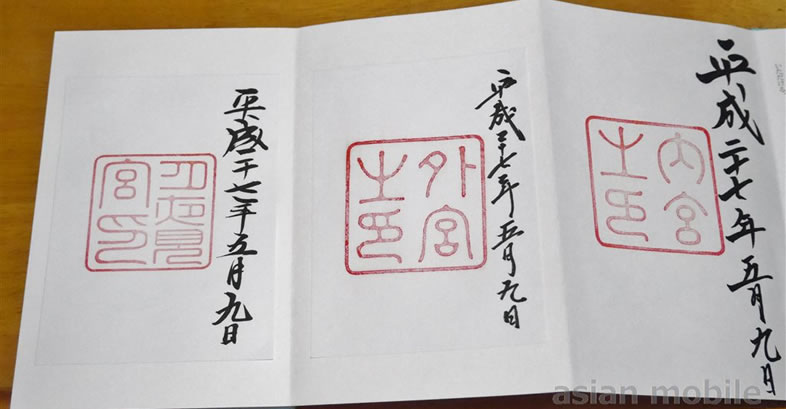 平成二十七年五月九日
内宮
之印
平成二十七年五月九日
外宮
之印
平成二十七年五月九日
月夜見
宮印
asian mobile